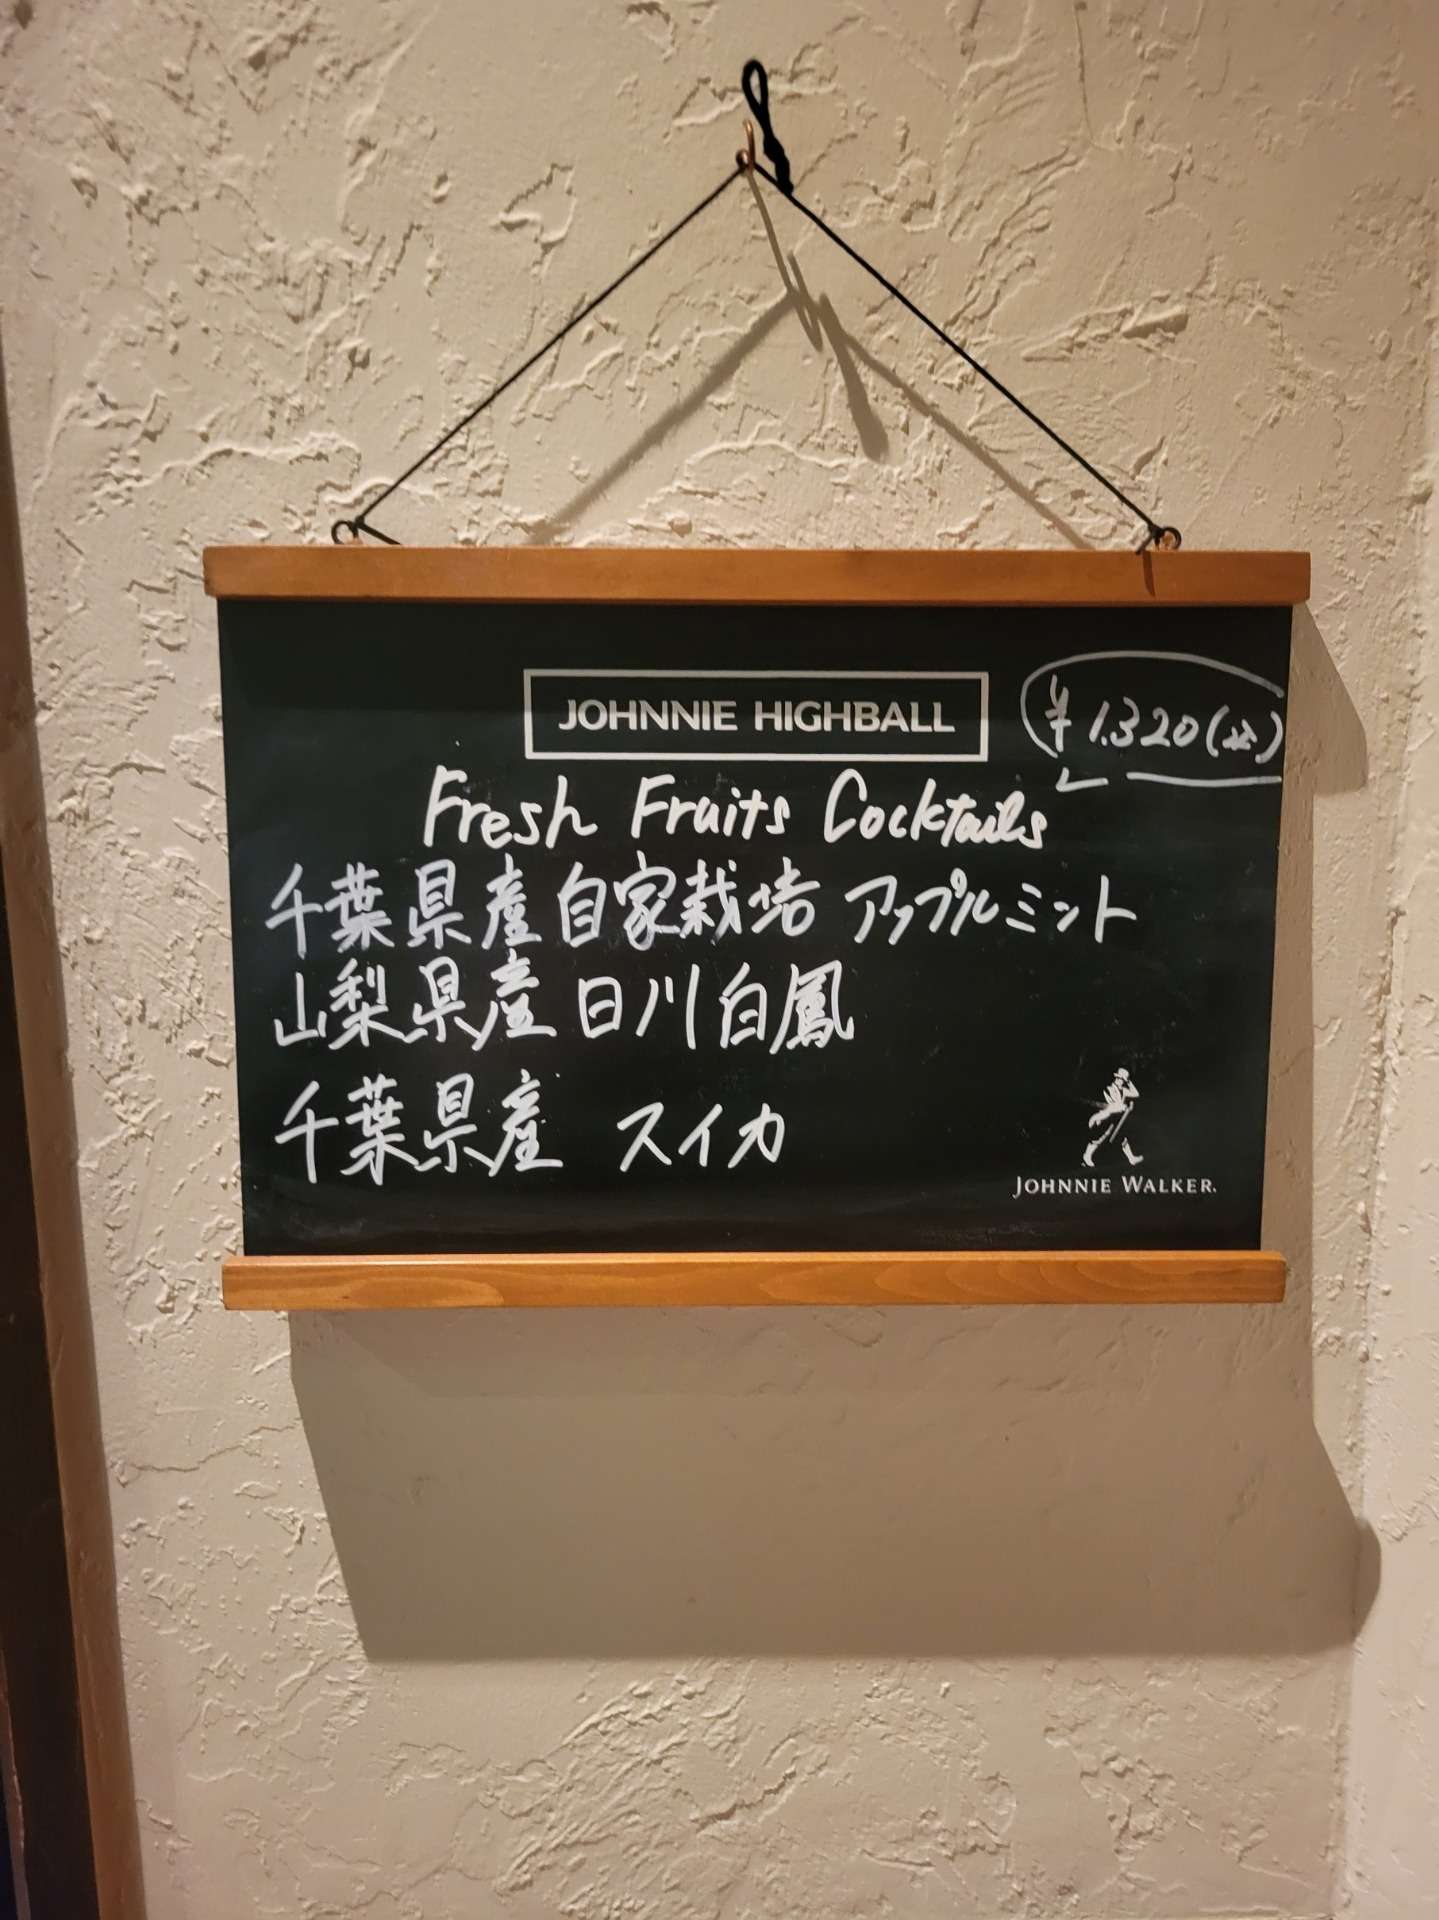 JOHNNIE HIGHBALL
¥1.320(込)
Fresh Fruits Cocktails
千葉県産自家栽培 アップルミント
山梨県産 日川白鳳
千葉県産 スイカ
JOHNNIE WALKER.